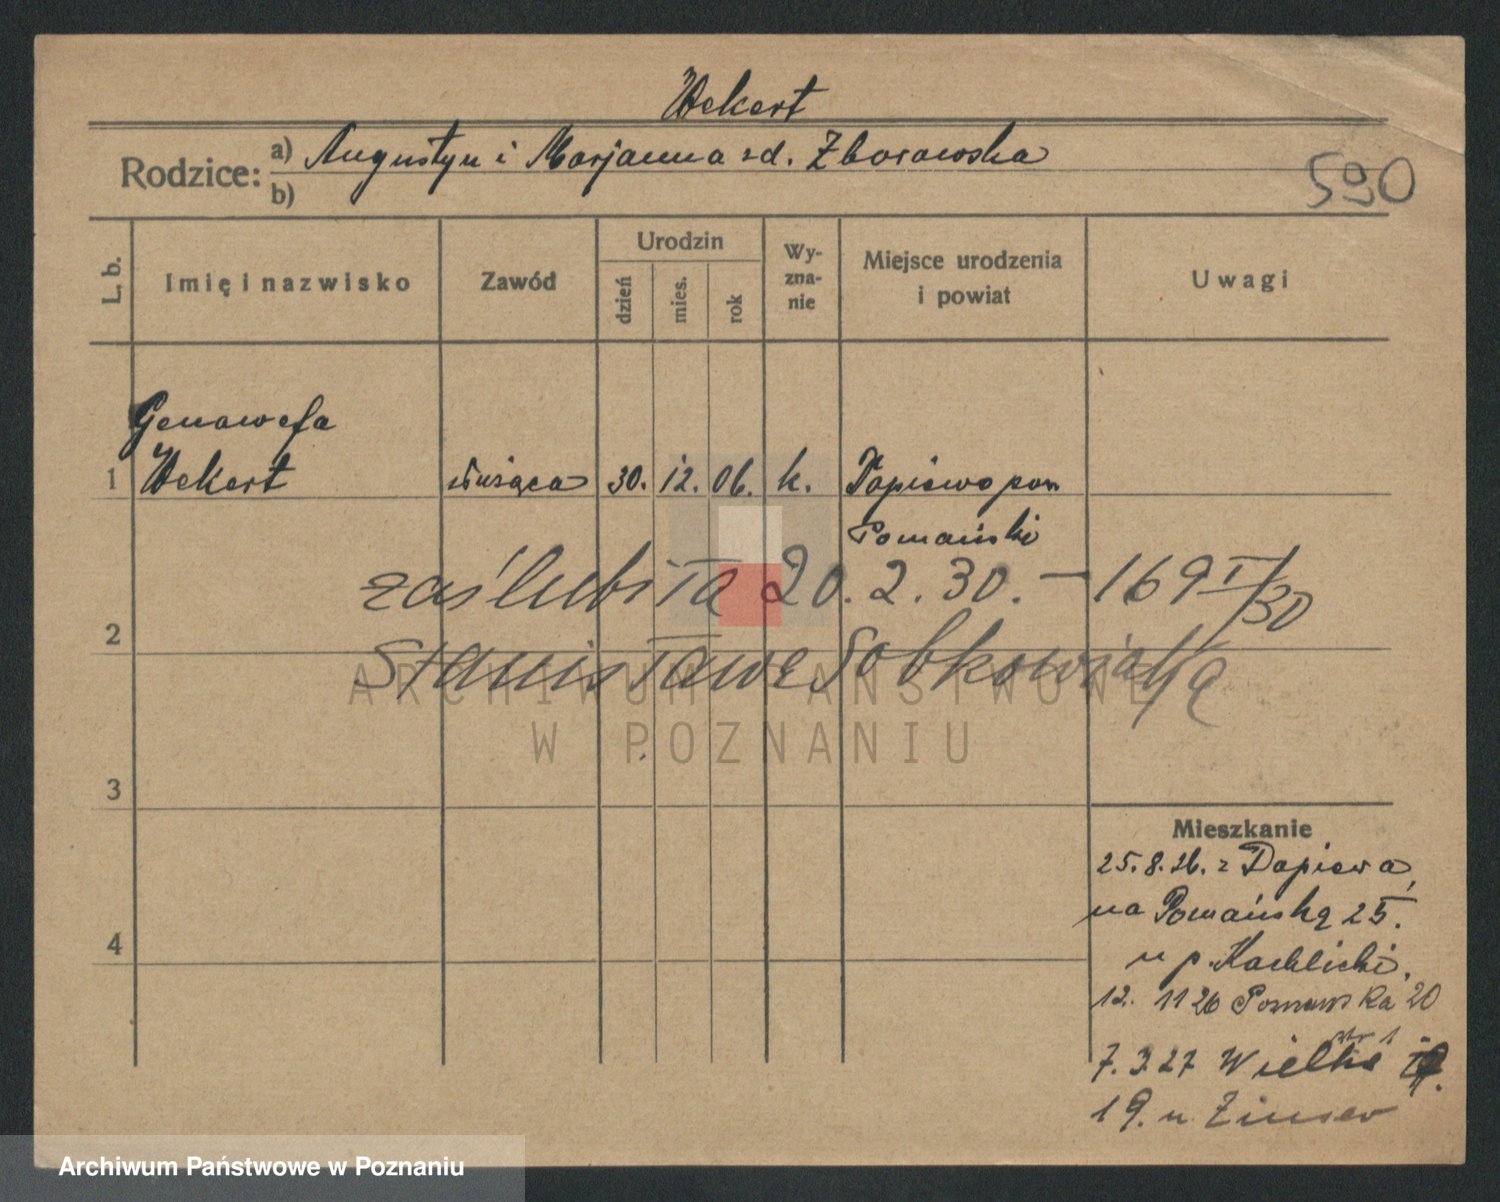 Wekert
Rodzice: a) Augustyn i Marjanna zd. Zborowska
b)
590
L. b. Imię i nazwisko Zawód Urodzin dzień mies. rok Wy-zna-nie Miejsce urodzenia i powiat Uwagi
Genowefa
1 Wekert służąca 30. 12. 06. k. Dopiewo pow
Poznański
zaślubiła 20. 2. 30. – 169 I/30
2
Stanisława Sobkowiaka
ARCHIWUM PAŃSTWOWE
W POZNANIU
3
Mieszkanie
25.8.26. z Dopiewa,
na Poznańską 25.
4
u p. Kachlicki.
12. 11 26 Poznańska 20
7.3.27 Wielka
19. u Zinser
Archiwum Państwowe w Poznaniu